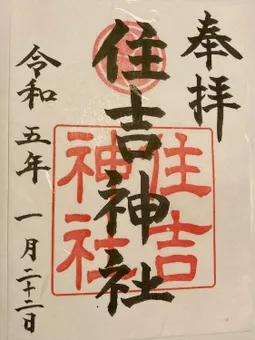 奉拝
住吉神社
住吉
神社
令和五年 一月二十二日